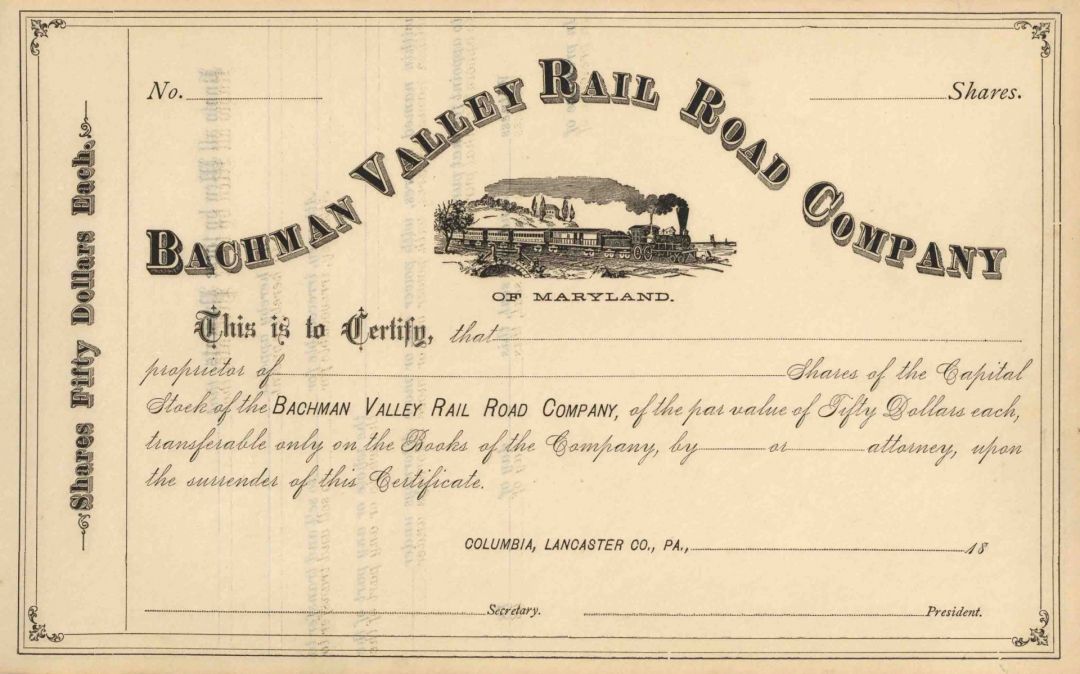 No. Shares.
BACHMAN VALLEY RAIL ROAD COMPANY
OF MARYLAND.
Shares Fifty Dollars Each.
This is to Certify, that
proprietor of Shares of the Capital
Stock of the BACHMAN VALLEY RAIL ROAD COMPANY, of the par value of Fifty Dollars each,
transferable only on the Books of the Company, by or attorney, upon
the surrender of this Certificate.
COLUMBIA, LANCASTER CO., PA., 18
Secretary. President.